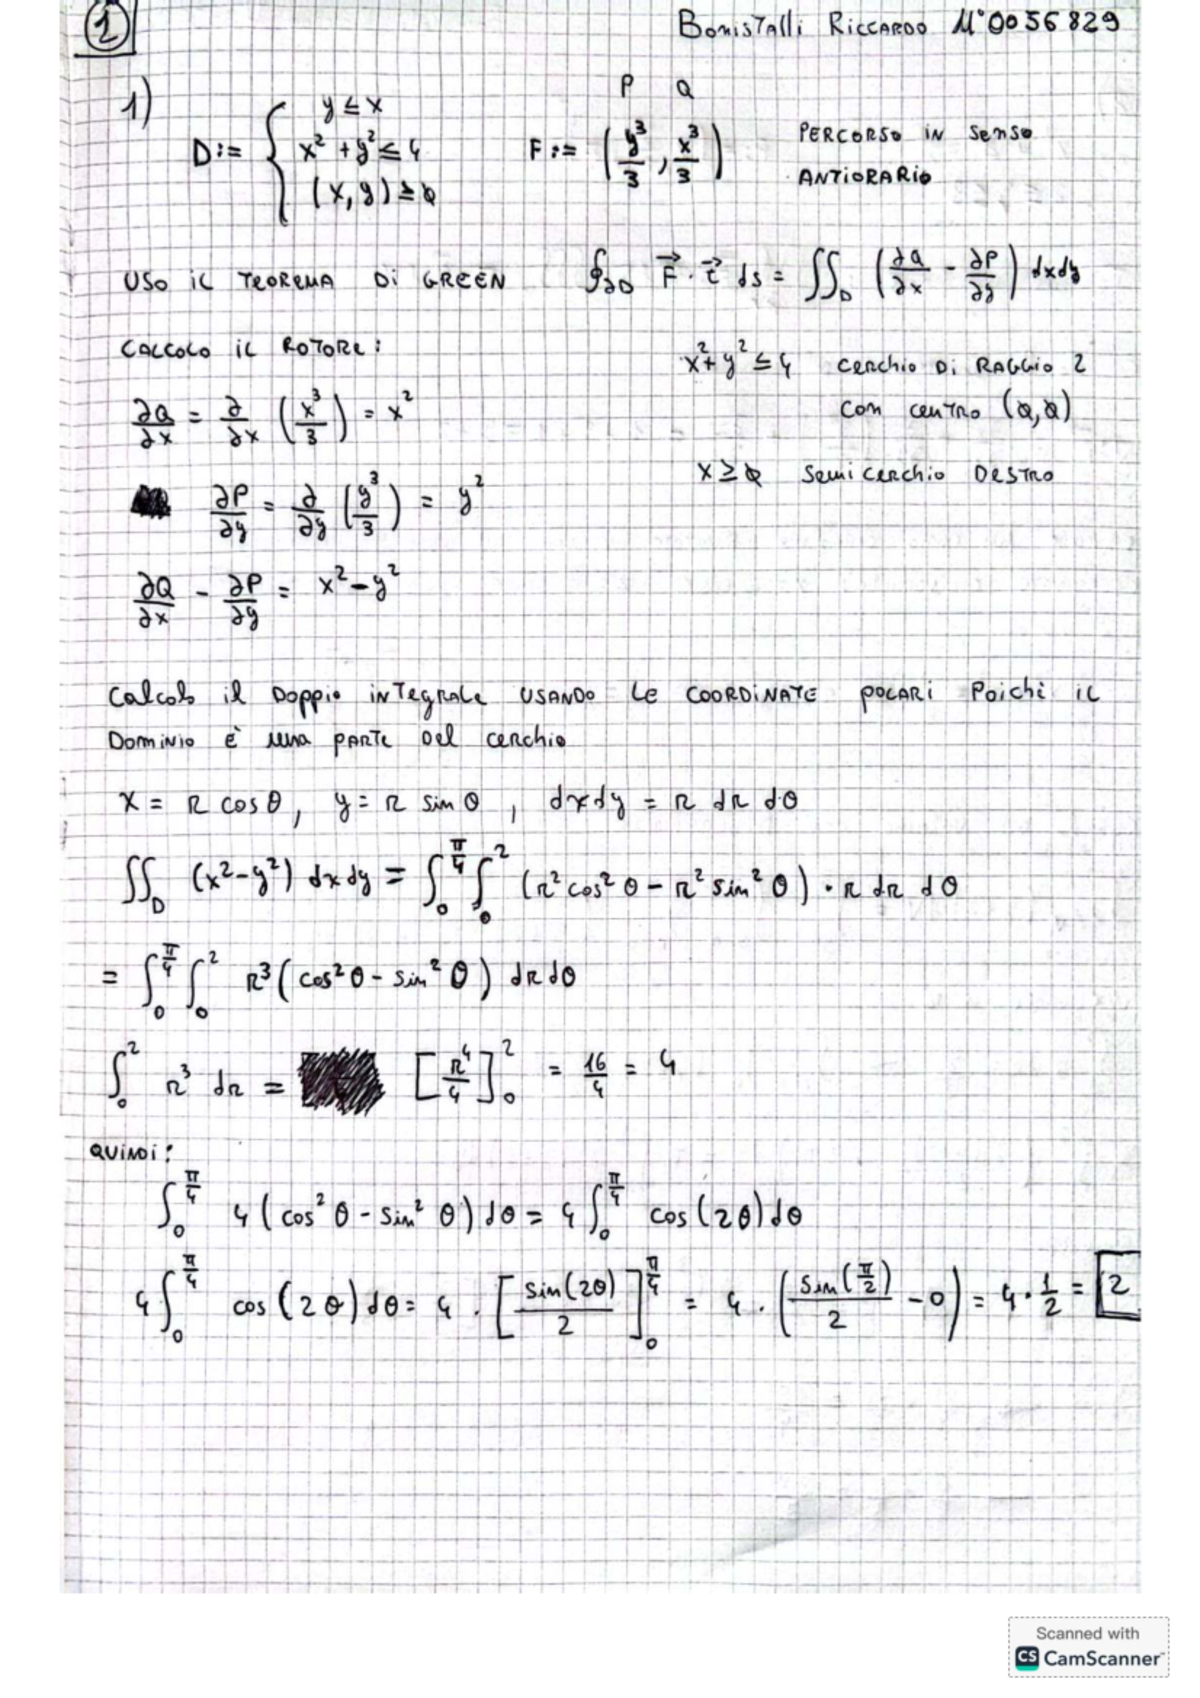 1 Bonistalli Riccardo M°0036829
1)
D:= { y ≤ x
x² + y² ≤ 4
(x,y) ≥ 0
P Q
F := (y³/3, x³/3)
PERCORSO IN SENSO
ANTIORARIO
USO IL TEOREMA DI GREEN ∮∂D F→ · τ→ ds = ∬D (∂Q/∂x - ∂P/∂y) dxdy
CALCOLO IL ROTORE:
x² + y² ≤ 4 cerchio di RAGGIO 2
con centro (0,0)
∂Q/∂x = ∂/∂x (x³/3) = x²
x ≥ 0 semicerchio DESTRO
∂P/∂y = ∂/∂y (y³/3) = y²
∂Q/∂x - ∂P/∂y = x² - y²
Calcolo il Doppio inTegrale USANDO LE COORDINATE POLARI Poichè il
Dominio è una PARTE Del cerchio
x = R cosθ, y = R sinθ, dxdy = R dR dθ
∬D (x²-y²) dxdy = ∫₀^(π/4) ∫₀² (R² cos² θ - R² sin² θ) · R dR dθ
= ∫₀^(π/4) ∫₀² R³ (cos² θ - sin² θ) dR dθ
∫₀² R³ dR = [R⁴/4]₀² = 16/4 = 4
QUINDI:
∫₀^(π/4) 4 (cos² θ - sin² θ) dθ = 4 ∫₀^(π/4) cos(2θ) dθ
4 ∫₀^(π/4) cos(2θ) dθ = 4 · [sin(2θ)/2]₀^(π/4) = 4 · (sin(π/2)/2 - 0) = 4 · 1/2 = 2
Scanned with
CS CamScanner